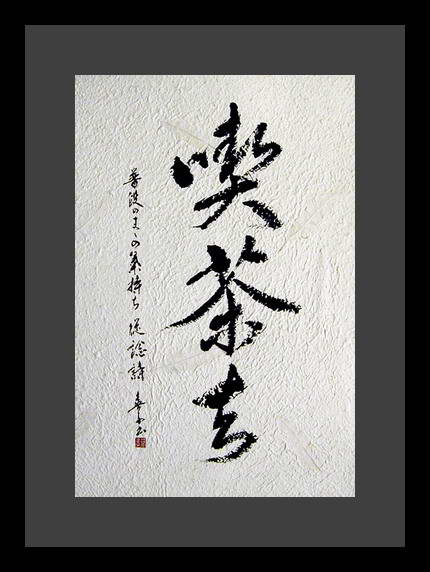 喫茶去
普段のまゝの気持ち 従諗詩